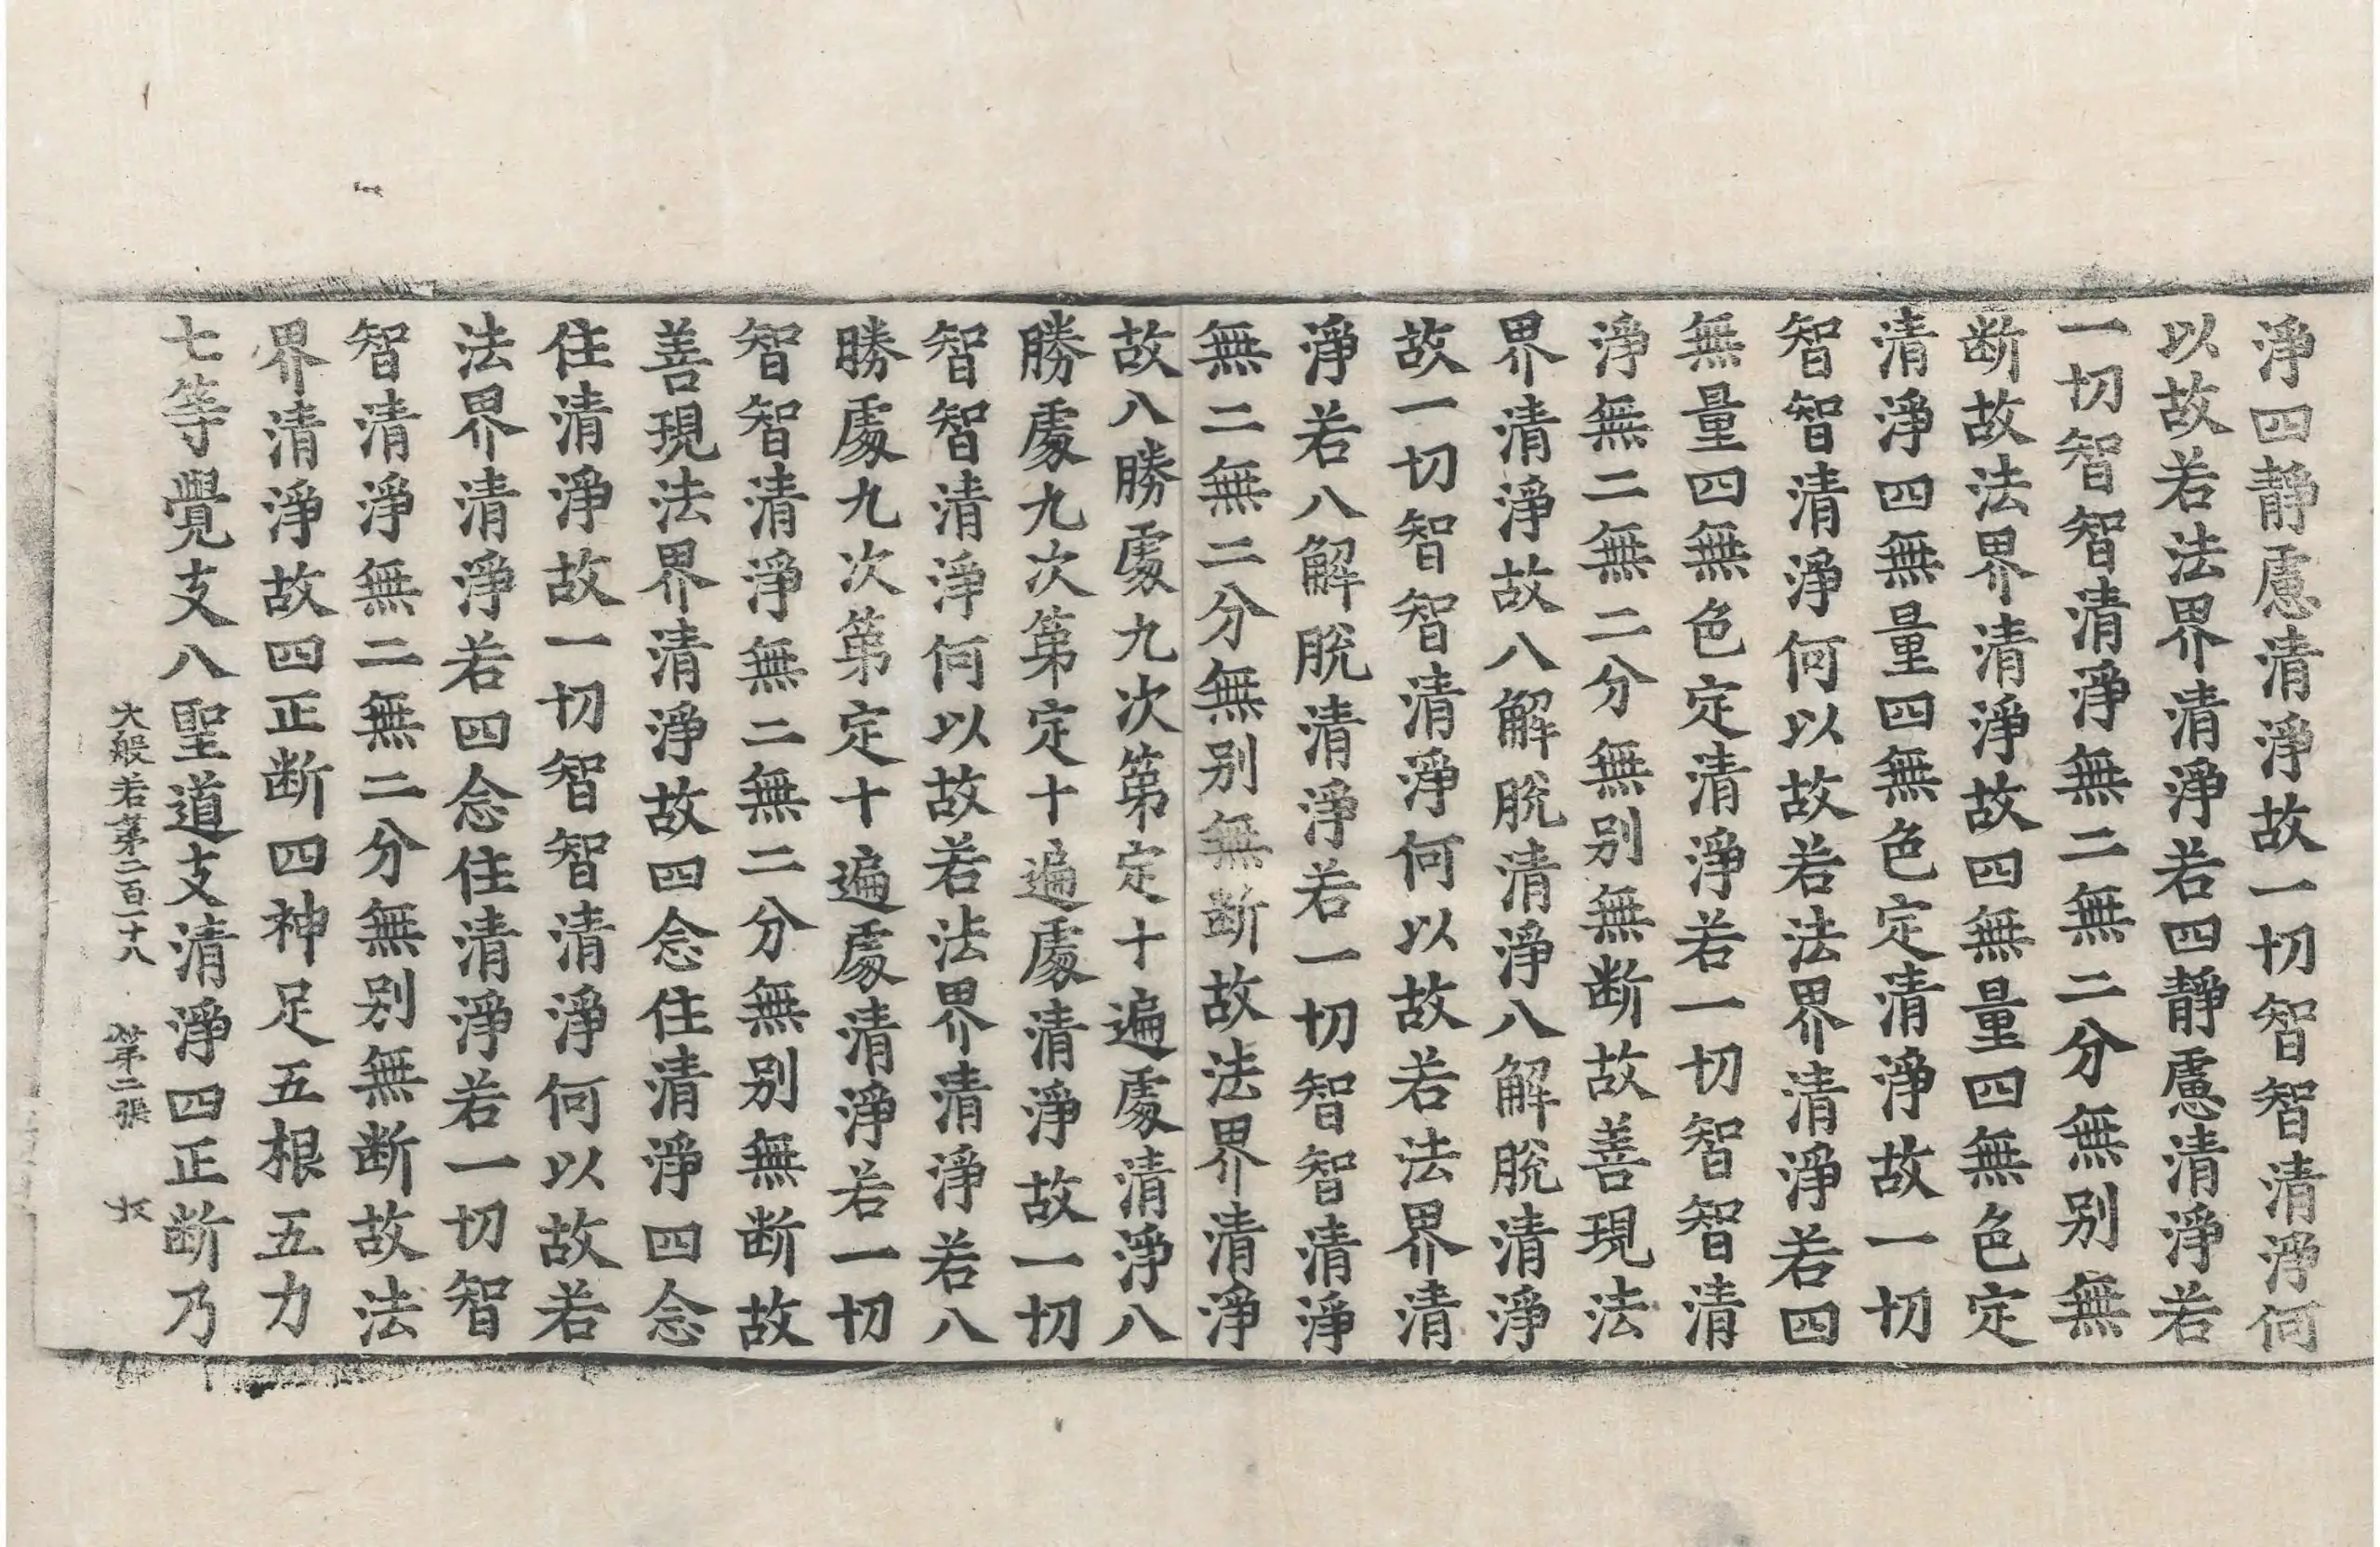 淨四靜慮清淨故一切智智清淨何
以故若法界清淨若四靜慮清淨若
一切智智清淨無二無二分無別無
断故法界清淨故四無量四無色定
清淨四無量四無色定清淨故一切
智智清淨何以故若法界清淨若四
無量四無色定清淨若一切智智清
淨無二無二分無別無断故善現法
界清淨故八解脫清淨八解脫清淨
故一切智智清淨何以故若法界清
淨若八解脫清淨若一切智智清淨
無二無二分無別無断故法界清淨
故八勝處九次第定十遍處清淨八
勝處九次第定十遍處清淨故一切
智智清淨何以故若法界清淨若八
勝處九次第定十遍處清淨若一切
智智清淨無二無二分無別無断故
善現法界清淨故四念住清淨四念
住清淨故一切智智清淨何以故若
法界清淨若四念住清淨若一切智
智清淨無二無二分無別無断故法
界清淨故四正断四神足五根五力
七等覺支八聖道支清淨四正断乃
大般若第二百一十八 第二張